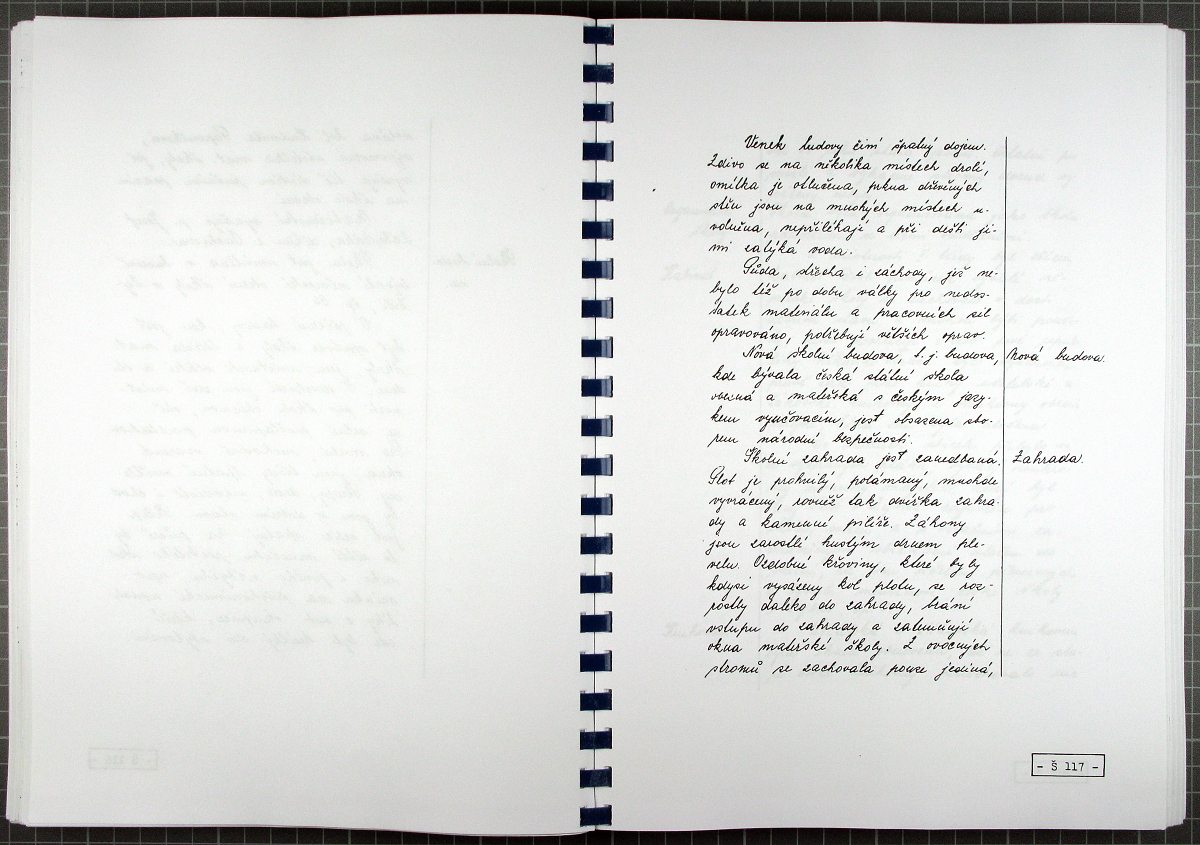 Venek budovy činí špatný dojem.
Zdivo se na několika místech drolí,
omítka je otlučena, prkna dřevěných
stěn jsou na mnohých místech u-
volněna, nepřiléhají a při dešti ji-
mi zatýká voda.
Půda, střecha i záchody, jež ne-
bylo též po dobu války pro nedos-
tatek materiálu a pracovních sil
opravováno, potřebují větších oprav.
Nová školní budova, t.j. budova, Nová budova.
kde bývala česká státní škola
obecná a mateřská s českým jazy-
kem vyučovacím, jest obsazena sbo-
rem národní bezpečnosti.
Školní zahrada jest zanedbaná. Zahrada.
Plot je prohnilý, polámaný, mnohde
vyvrácený, rovněž tak dvířka zahra-
dy a kamenné pilíře. Záhony
jsou zarostlé hustým drnem ple-
velu. Ozdobné křoviny, které byly
kdysi vysázeny kol plotu, se roz-
rostly daleko do zahrady, brání
vstupu do zahrady a zatemňují
okna mateřské školy. Z ovocných
stromů se zachovala pouze jediná,
- Š 117 -